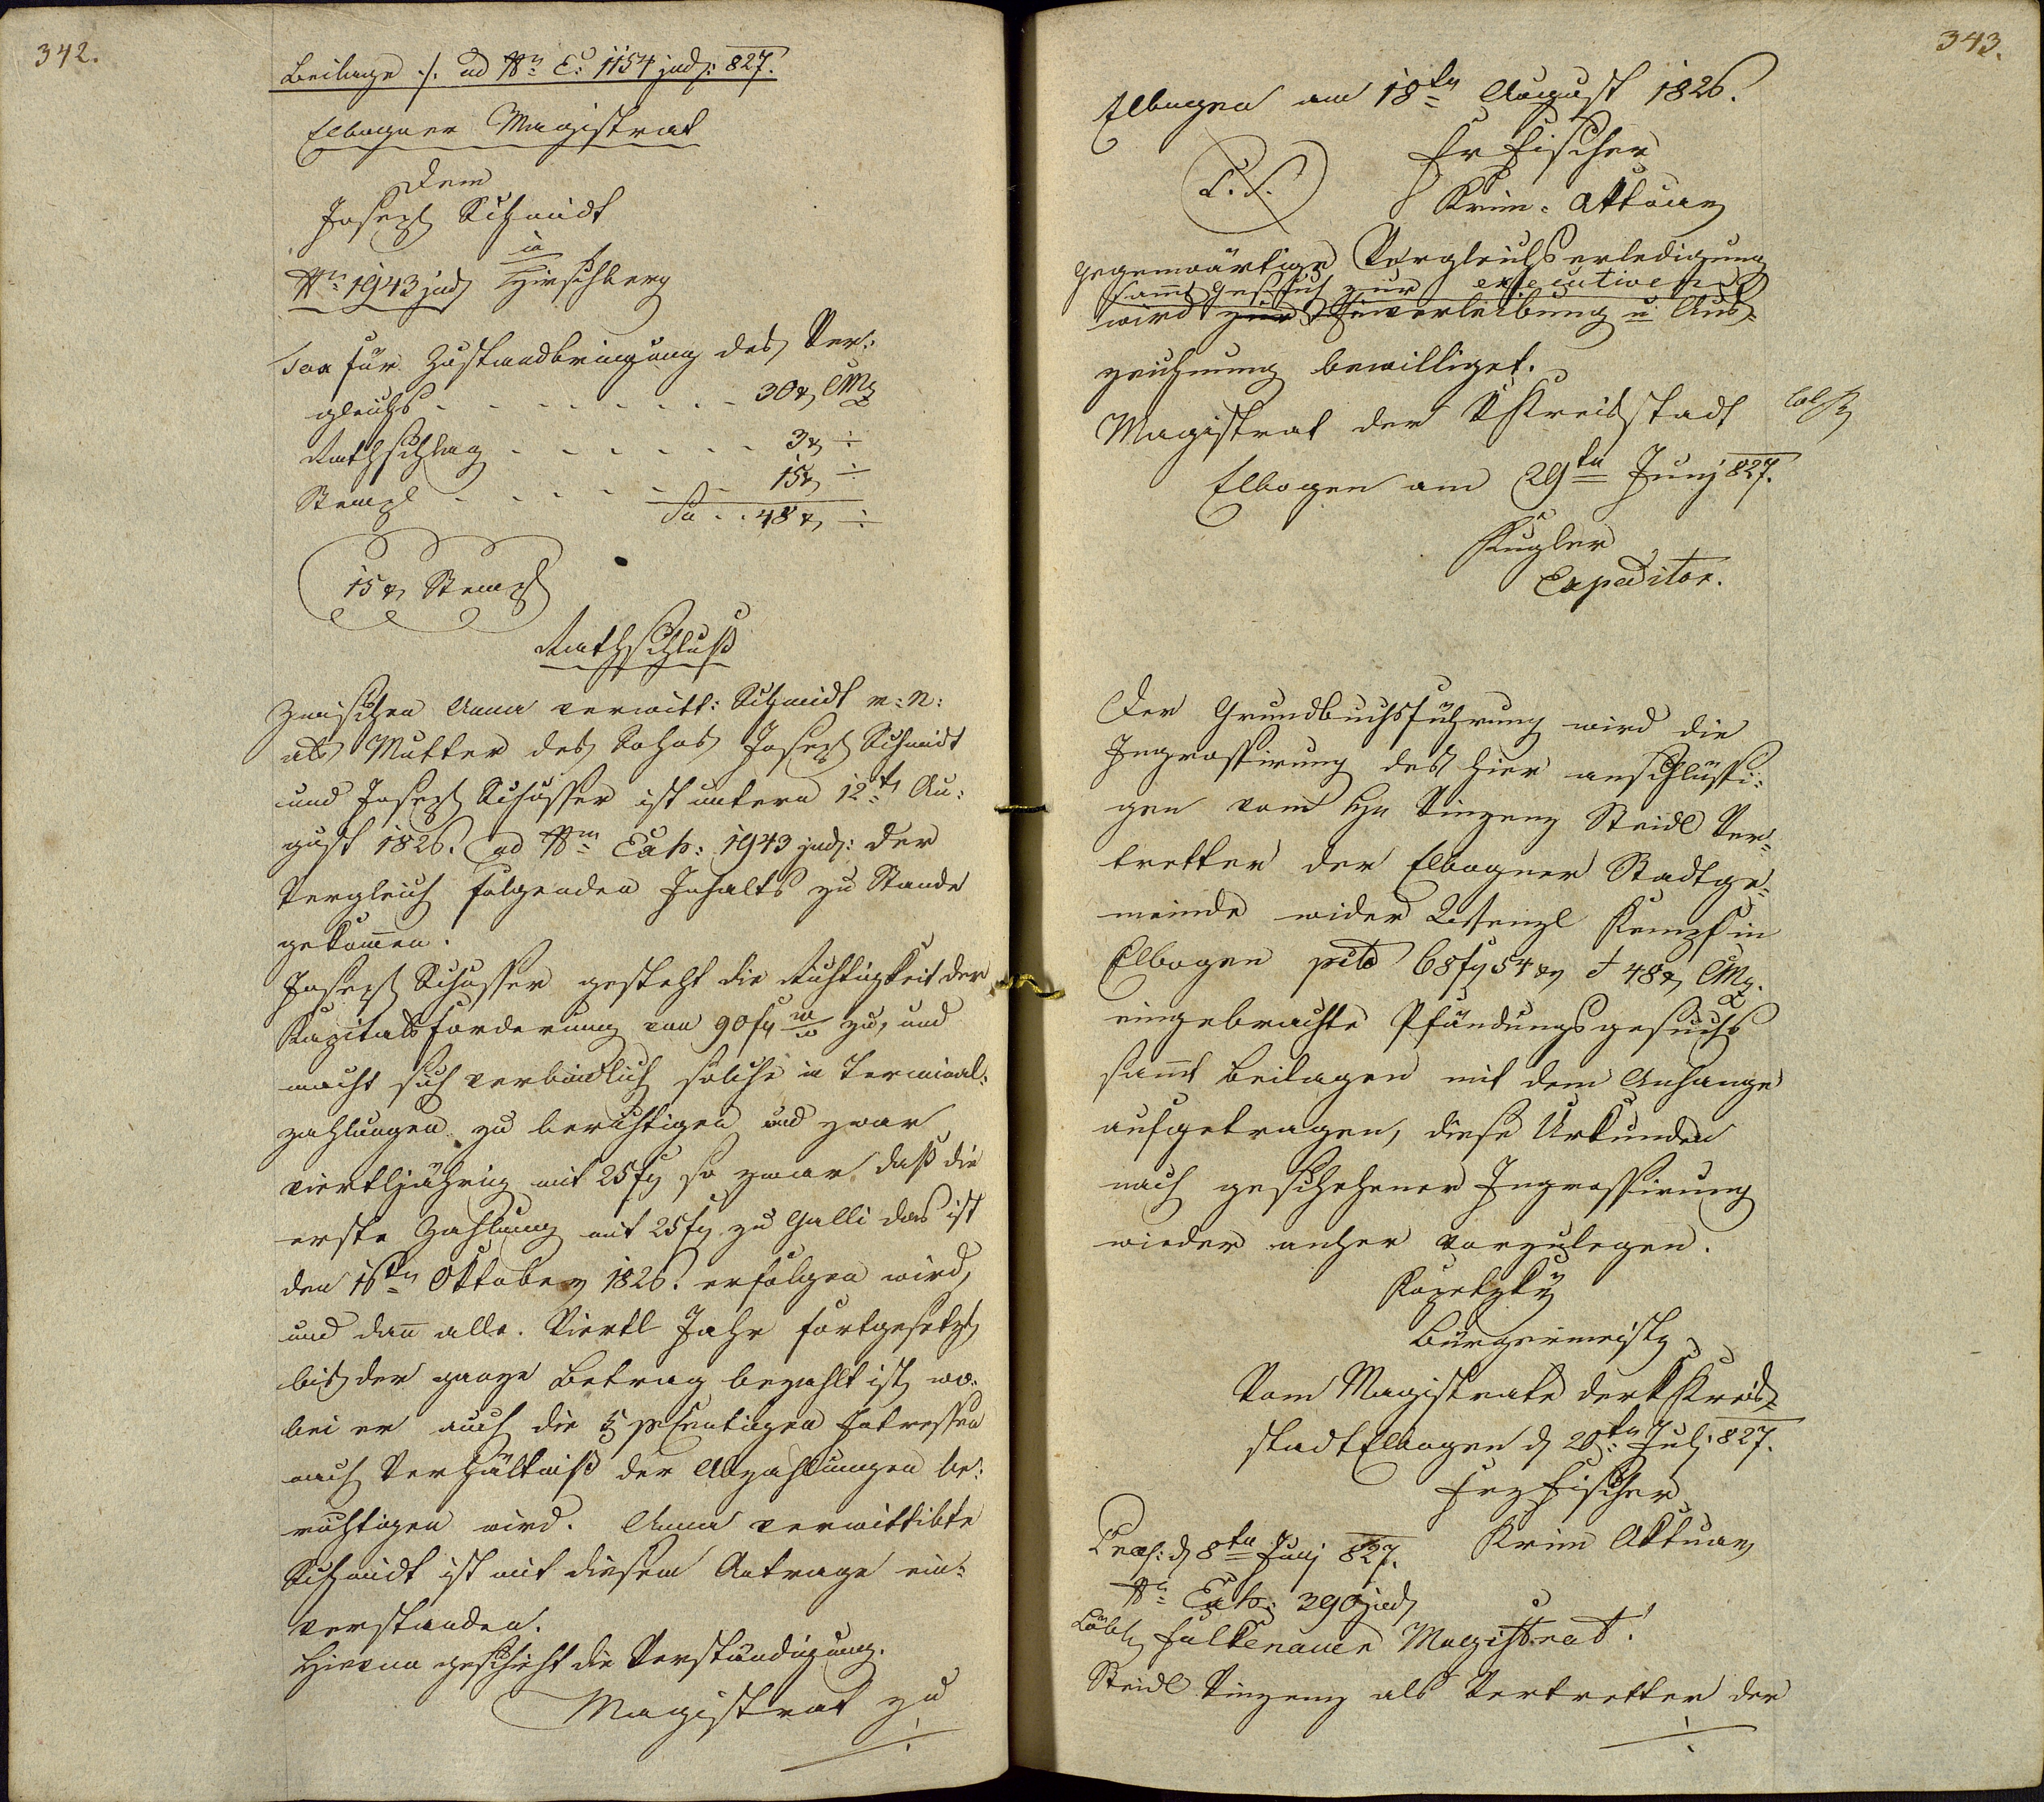 342.
Beilage ./. ad Nr. E: 1154 jud: 827.
Elbogner Magistrat
Dem
Joseph Schmidt
in
Nr. 1943 jud Hirschberg
Tax für Zustandbringung des Ver:
gleichs - - - - - - - - 30 x CMz
Rathschlag - - - - - - 3 x ÷
Stempl - - - - - - 15 x ÷
Sa - - 48 x ÷
15 x Stempl
Rathschluß
Zwischen Anna verwitt: Schmidt w: N:
als Mutter des Sohns Joseph Schmidt
und Joseph Schosser ist unterm 12t Au:
gust 1826. ad Nrm Exh: 1943 jud: der
Vergleich folgenden Inhalts zu Stande
gekomen.
Joseph Schosser gesteht die Richtigkeit der
Kapitalsforderung von 90 fl W W zu, und
macht sich verbindlich solche in Terminal:
zahlungen zu berichtigen und zwar
viertljährig mit 25 fl so zwar daß die
erste Zahlung mit 25 fl zu Galli das ist
den 16ten Oktober 1826. erfolgen wird,
und dan alle Viertl Jahr fortgesetzt
bis der ganze Betrag bezahlt ist, wo:
bei er auch die 5 pSentigen Intressen
nach Verhältniß der Abzahlungen be:
richtigen wird. Anna verwittibte
Schmidt ist mit diesem Antrage ein:
verstanden.
Hievon geschieht die Verständigung.
Magistrat zu
÷
343.
Elbogen am 18ten August 1826.
Fr Fischer
L. S.
Krim: Aktuar
Gegenwärtige Vergleichserledigung
samt Gesuch zur executiven
wird zur Einverleibung u Aus-
zeichnung bewilliget.
Magistrat der K Kreisstadt
Elbogen am 29ten Junj 827.
Kugler
Expeditor.
Der Grundbuchsführung wird die
Ingrossirung des hier anschlüssi:
gen vom Hr Vinzenz Steidl Ver:
tretter der Elbogner Stadtge:
meinde wider Wenzl Kempf in
Elbogen pcto 68 fl 54 x et 48 x CMz.
eingebrachte Pfändungsgesuchs
samt Beilagen mit dem Anhange
aufgetragen, diese Urkunden
nach geschehener Ingrossirung
wieder anher vorzulegen.
Kopetzky
Bürgermeister
Vom Magistrate der K Kreis-
stadt Elbogen d 20ten Julj 827.
Frz Fischer
Krim Aktuar
Praes: d 8ten Junj 827.
Nr. Exh: 390 jud
Löbl Falkenauer Magistrat!
Steidl Vinzenz als Vertretter der
÷